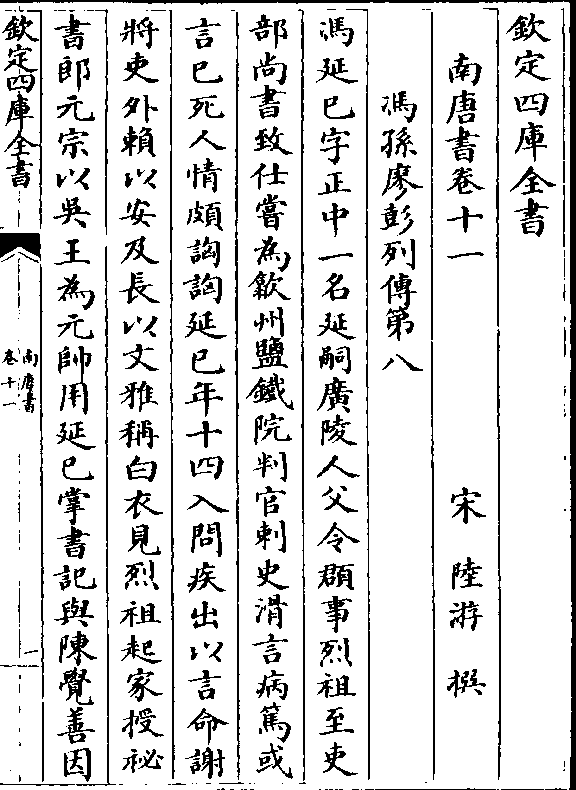 欽定四庫全書
南唐書卷十一　宋　陸游　撰
馮孫廖彭列傳第八
馮延巳字正中一名延嗣廣陵人父令頵事烈祖至吏
部尚書致仕嘗為歙州鹽鐵院判官刺史滑言病篤或
言已死人情頗詾詾延巳年十四入問疾出以言命謝
將吏外賴以安及長以文雅稱白衣見烈祖起家授祕
書郎元宗以吳王為元帥用延巳掌書記與陳覺善因
欽定四庫全書
南唐書
卷十一
一